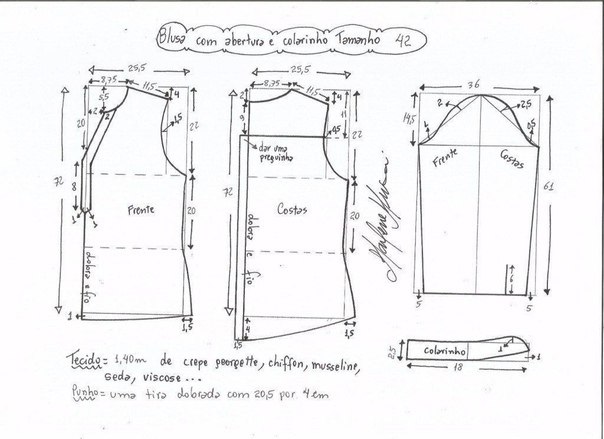 Blusa com abertura e colarinho Tamanho 42
25,5
8,75
11,5
4
5,5
2
2
20
1,5
22
8
72
Frente
20
dobra e fio
1
1,5
25,5
8,75
11,5
4
2
9
11
0,5
22
dar uma preguinha
72
Costas
20
dobra e fio
1,5
4
1,5
36
14,5
2
2,5
1
0,5
Frente
Costas
61
5
5
8,5
colarinho
1
1
18
Tecido = 1,40m de crepe georgette, chiffon, musseline,
seda, viscose ...
Punho = uma tira dobrada com 20,5 por 4 em